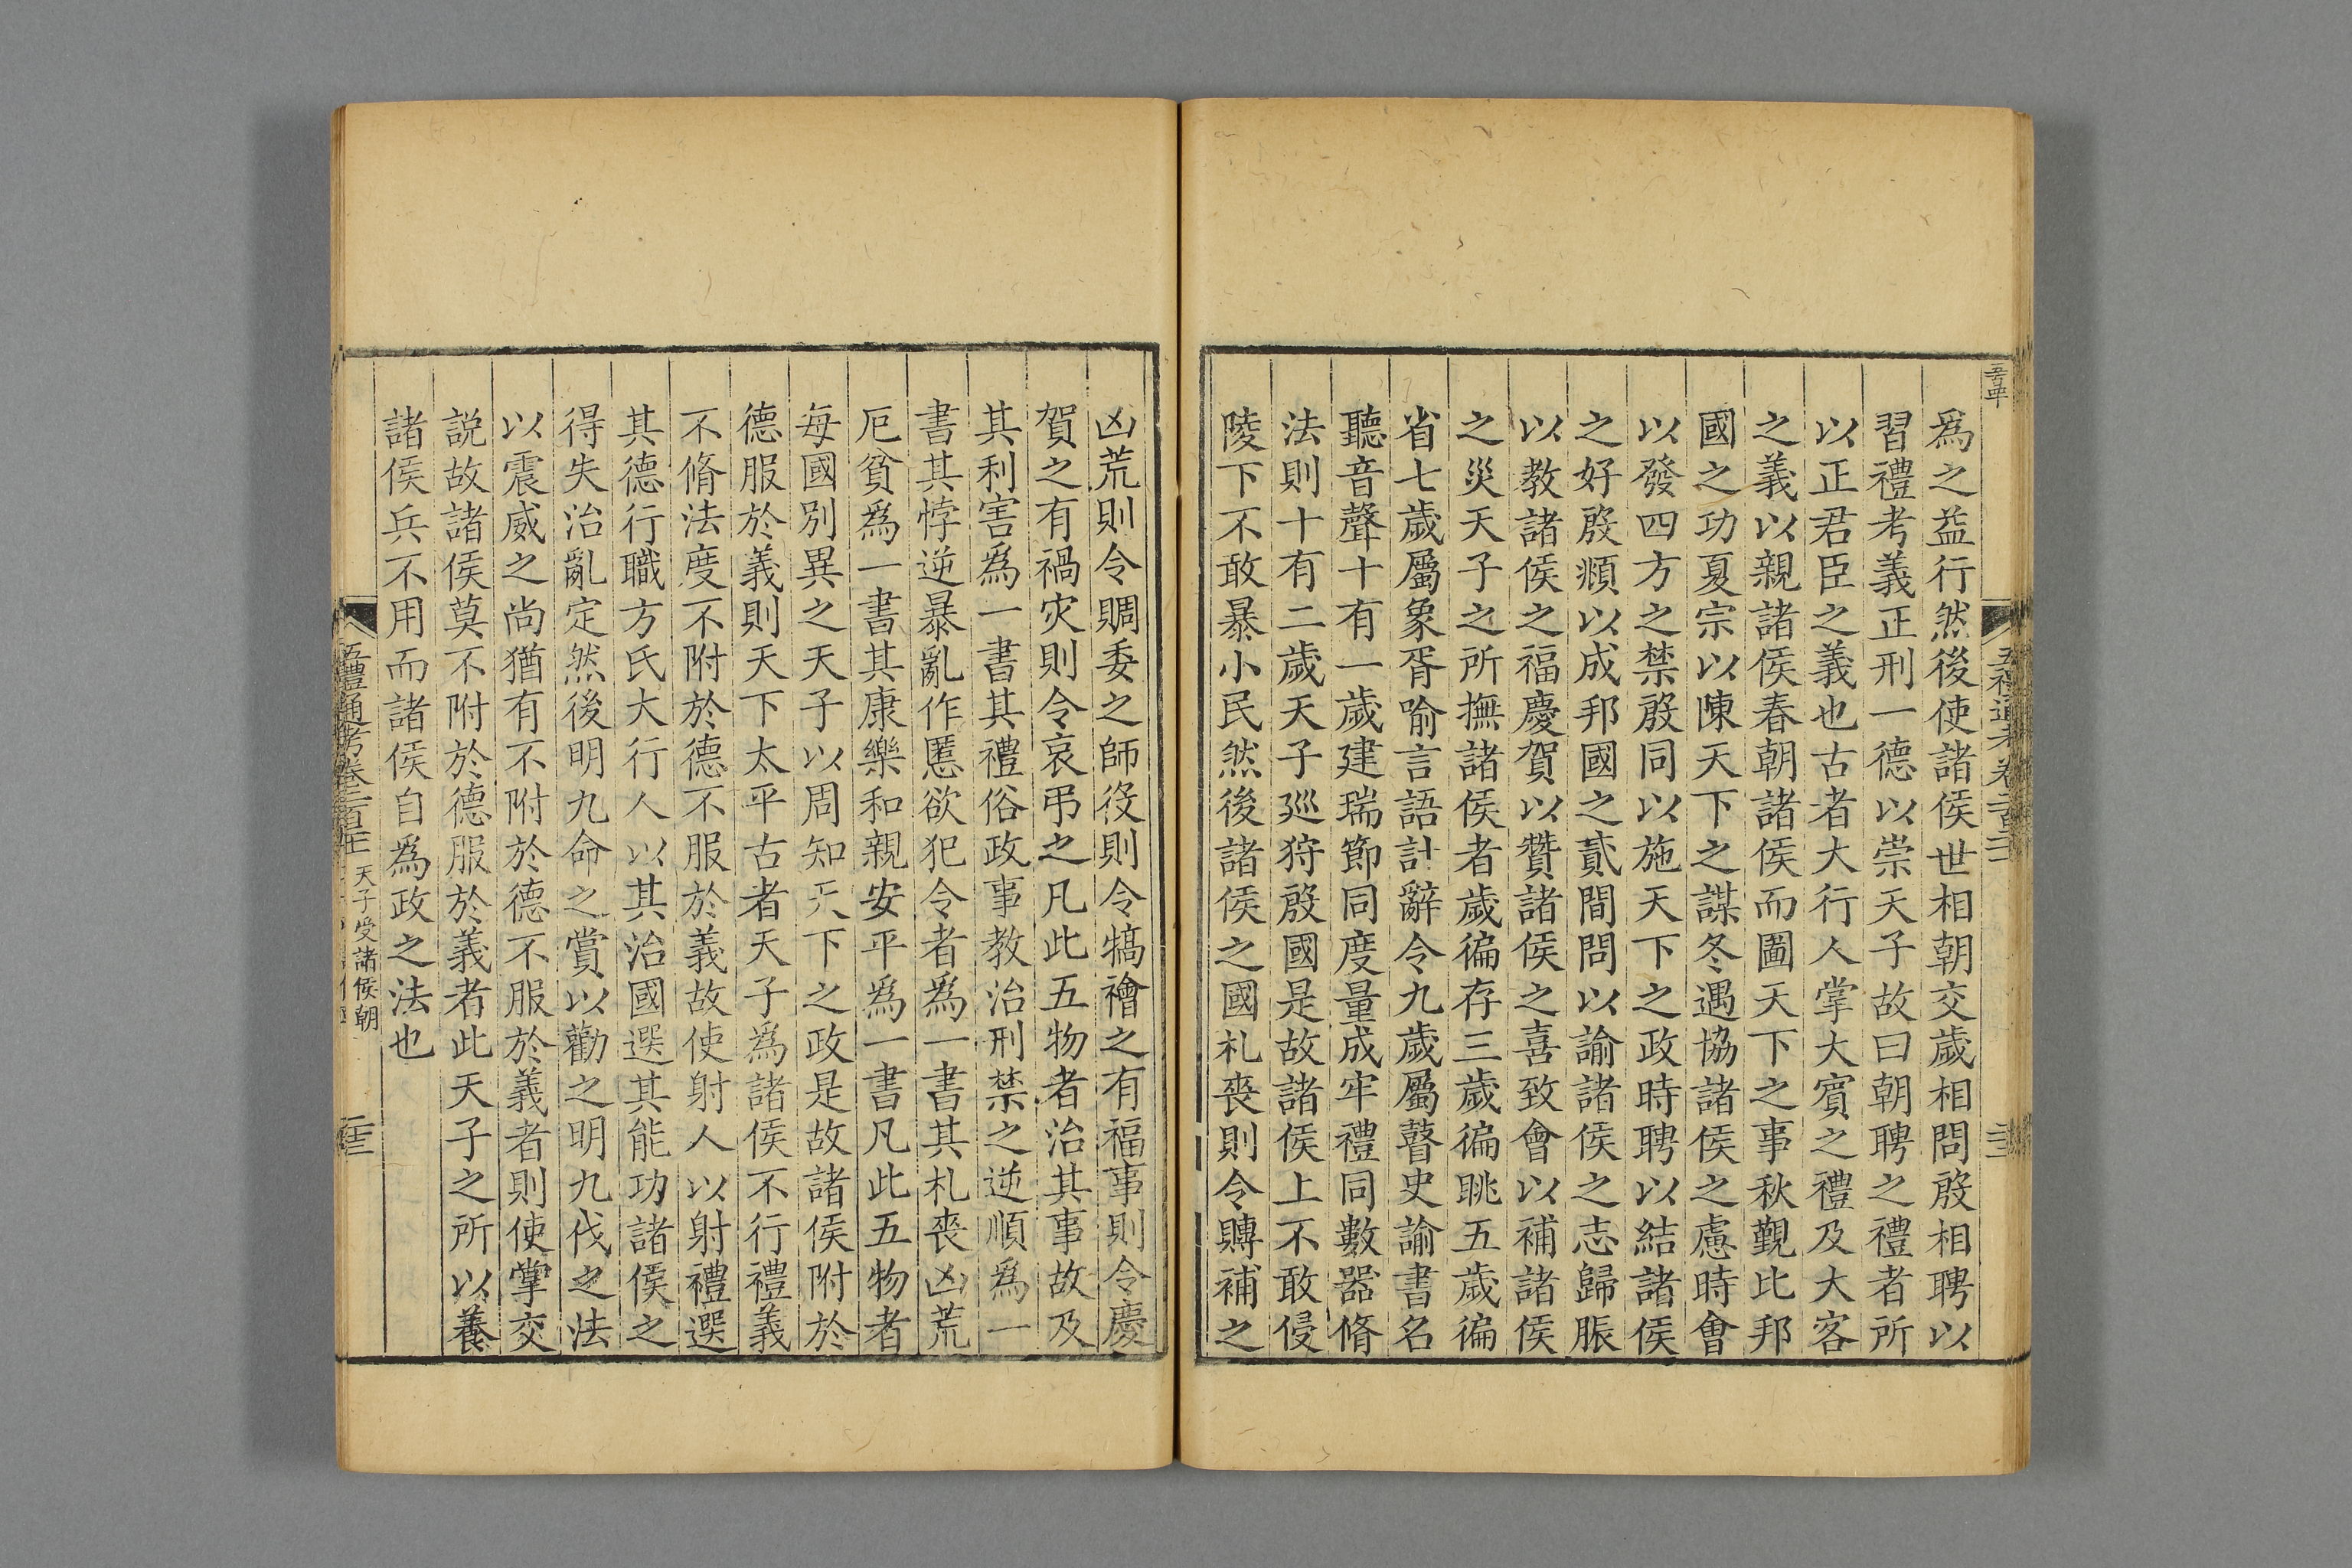 爲之益行然後使諸侯世相朝交歲相問殷相聘以
習禮考義正刑一德以崇天子故曰朝聘之禮者所
以正君臣之義也古者大行人掌大賓之禮及大客
之義以親諸侯春朝諸侯而圖天下之事秋覲比邦
國之功夏宗以陳天下之謀冬遇協諸侯之慮時會
以發四方之禁殷同以施天下之政時聘以結諸侯
之好殷頫以成邦國之貳間問以諭諸侯之志歸脤
以教諸侯之福慶賀以贊諸侯之喜致會以補諸侯
之災天子之所撫諸侯者歲徧存三歲徧眺五歲徧
省七歲屬象胥喻言語計辭令九歲屬瞽史諭書名
聽音聲十有一歲建瑞節同度量成牢禮同數器脩
法則十有二歲天子廵狩殷國是故諸侯上不敢侵
陵下不敢暴小民然後諸侯之國札喪則令賻補之
凶荒則令賙委之師役則令犒禬之有福事則令慶
賀之有禍灾則令哀弔之凡此五物者治其事故及
其利害爲一書其禮俗政事教治刑禁之逆順爲一
書其悖逆暴亂作慝欲犯令者爲一書其札喪凶荒
厄貧爲一書其康樂和親安平爲一書凡此五物者
每國別異之天子以周知天下之政是故諸侯附於
德服於義則天下太平古者天子爲諸侯不行禮義
不脩法度不附於德不服於義故使射人以射禮選
其德行職方氏大行人以其治國選其能功諸侯之
得失治亂定然後明九命之賞以勸之明九伐之法
以震威之尚猶有不附於德不服於義者則使掌交
説故諸侯莫不附於德服於義者此天子之所以養
諸侯兵不用而諸侯自爲政之法也
五禮通考卷二百二十
天子受諸侯朝